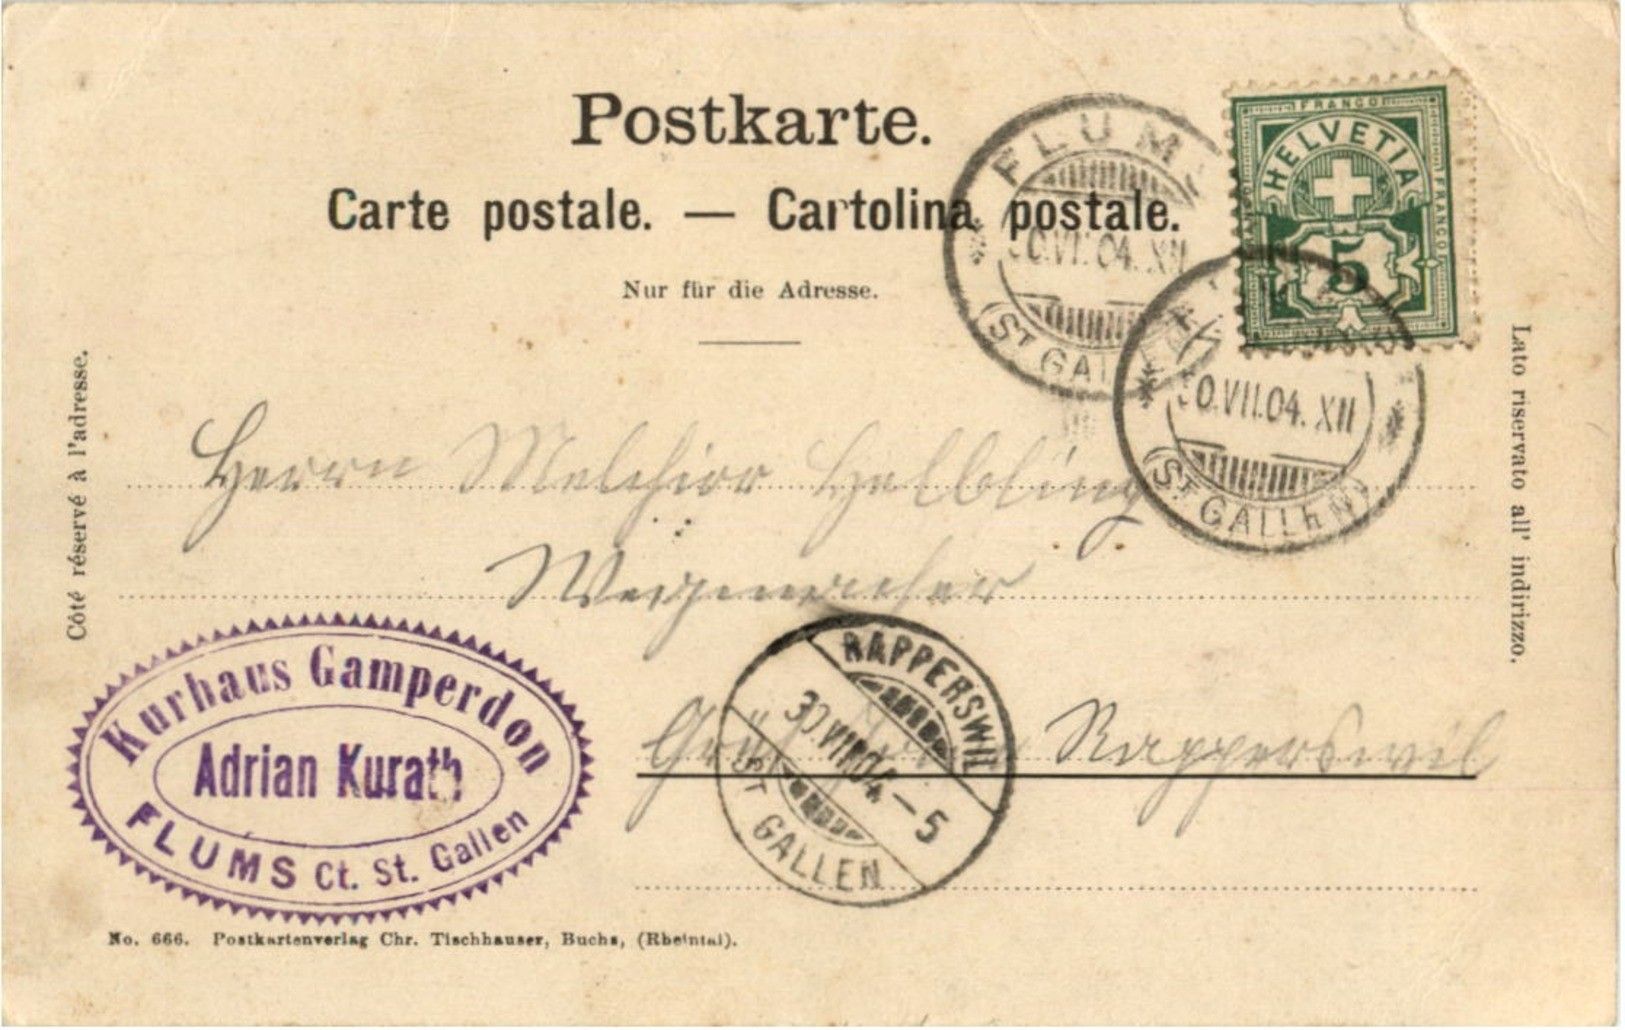 Postkarte.
Carte postale. — Cartolina postale.
Nur für die Adresse.
Côté réservé à l'adresse.
Lato riservato all' indirizzo.
FRANCO
HELVETIA
FRANCO
5
FLUMS
30.VII.04. XII
(ST GALLEN)
30.VII.04. XII
(ST GALLEN)
Herrn Melchior Helbling
Rapperswil
RAPPERSWIL
30.VII.04.–5
ST GALLEN
Kurhaus Gamperdon
Adrian Kurath
FLUMS Ct. St. Gallen
No. 666. Postkartenverlag Chr. Tischhauser, Buchs, (Rheintal).